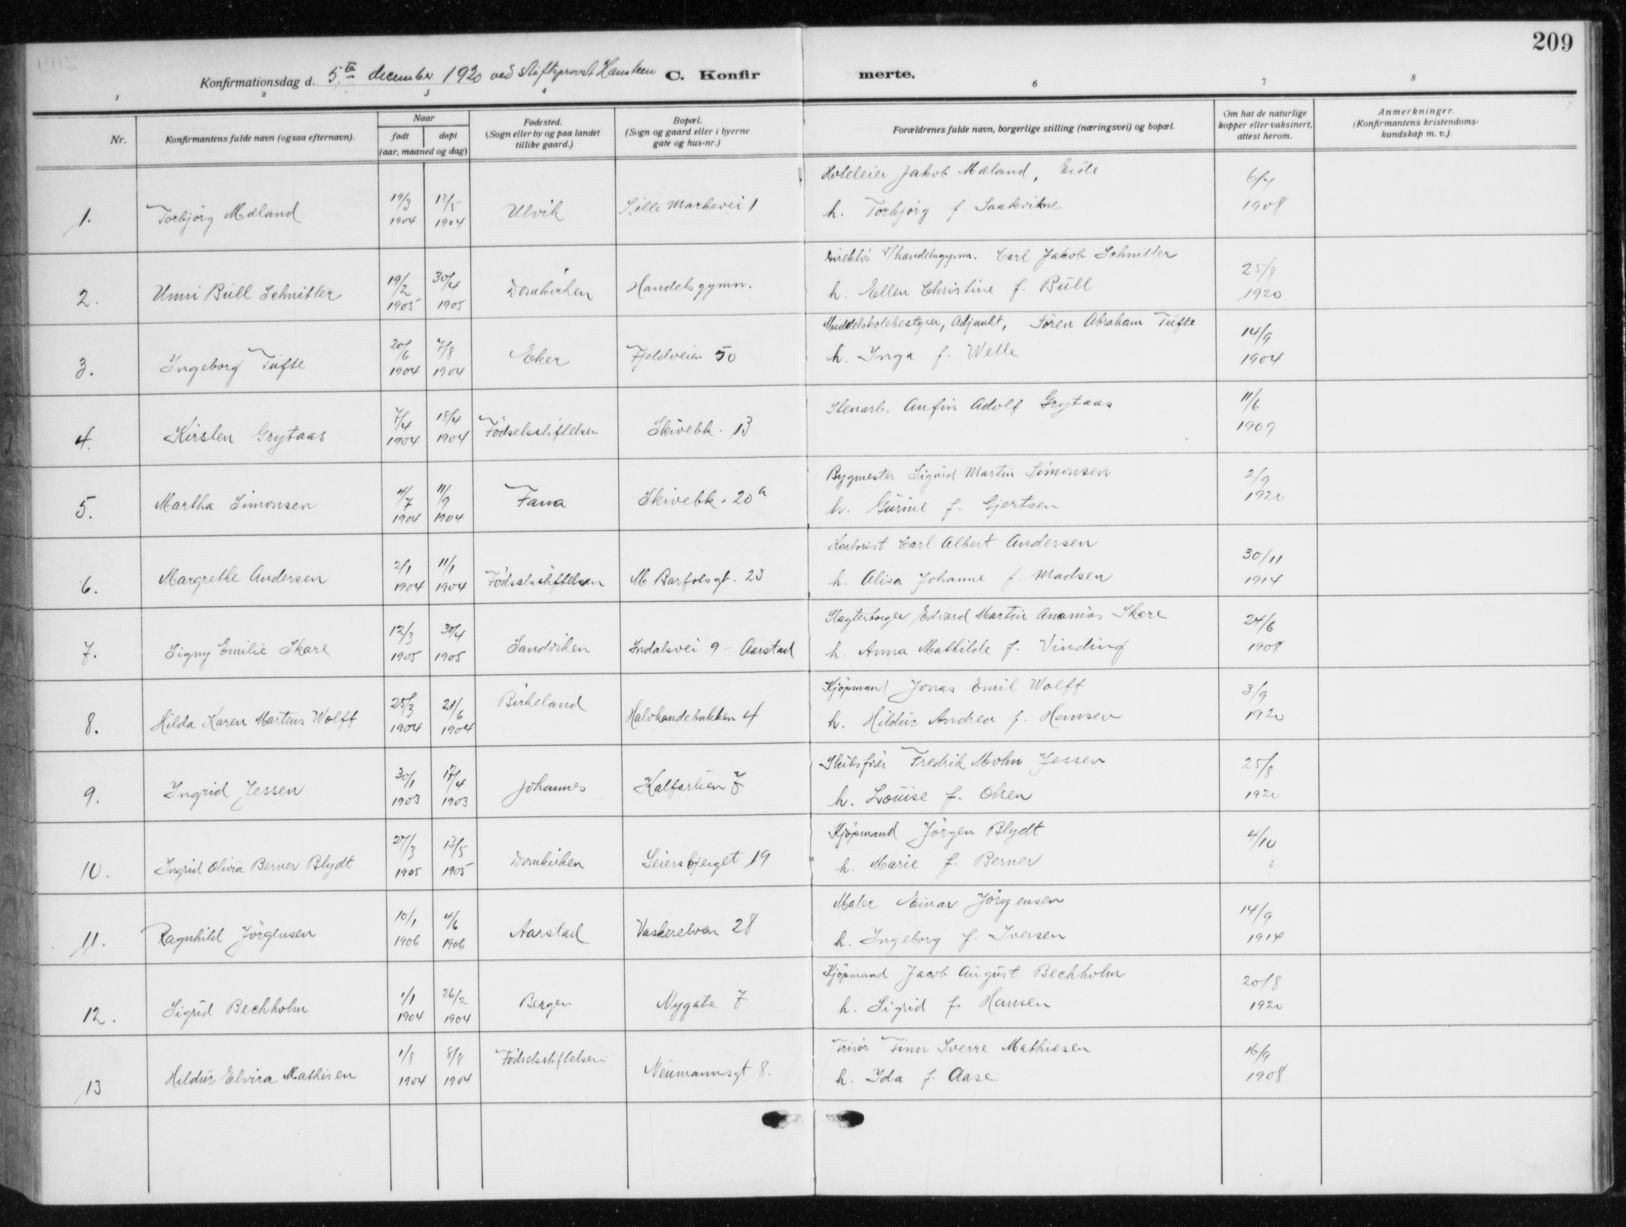 209
Konfirmationsdag d. 5te december 1920 ved stiftsprovst Hansteen C. Konfirmerte.
1 2 3 4 6 7 8
Nr.
Konfirmantens fulde navn (ogsaa efternavn).
Naar
født døpt
(aar, maaned og dag)
Fødested.
(Sogn eller by og paa landet
tillike gaard.)
Bopæl.
(Sogn og gaard eller i byerne
gate og hus-nr.)
Forældrenes fulde navn, borgerlige stilling (næringsvei) og bopæl.
Om hat de naturlige
kopper eller vaksinert,
attest herom.
Anmerkninger.
(Konfirmantens kristendoms-
kundskap m. v.).
Hoteleier Jakob Mæland, 6/4
1. Torbjørg Mæland 19/3 1904 12/5 1904 Ulvik Lille Markevei 1 h. Torbjørg f. Saakvitne 1908
Direktør v/handelsgymn. Carl Jakob Schnitler 25/8
2. Unni Bull Schnitler 19/2 1905 30/4 1905 Domkirken Handelsgymn. h. Ellen Christine f. Bull 1920
Middelskolebestyrer, Adjunkt, Søren Abraham Tufte 14/9
3. Ingeborg Tufte 20/6 1904 7/8 1904 Eker Fjeldveien 50 h. Inga f. Welle 1904
Stenarb. Anfin Adolf Grytaas 11/6
4. Kirsten Grytaas 7/4 1904 18/4 1904 Fødselsstiftelsen Skivebk. 13 1909
Bygmester Sigvid Martin Simonsen 2/9
5. Martha Simonsen 4/7 1904 11/9 1904 Fana Skivebk. 20a h. Gurine f. Gjertsen 1920
Kontorist Carl Albert Andersen 30/11
6. Margrethe Andersen 2/1 1904 11/1 1904 Fødselsstiftelsen M Barfotsgt. 23 h. Alisa Johanne f. Madsen 1914
Slagterborger Edvard Martin Ananias Skare 24/6
7. Signy Emilie Skare 12/3 1905 30/4 1905 Sandviken Indalsvei 9 - Aarstad h. Anna Mathilde f. Vinding 1908
Kjøpmand Jonas Emil Wolff 3/9
8. Hilda Karen Martens Wolff 25/3 1904 21/6 1904 Birkeland Halvkandebakken 4 h. Hildur Andrea f. Hansen 1920
Skibsfører Fredrik Mohn Jessen 25/8
9. Ingrid Jessen 30/1 1903 17/4 1903 Johannes Kalfarlien 7 h. Louise f. Olsen 1920
Kjøpmand Jørgen Blydt 4/10
10. Ingrid Olivia Berner Blydt 27/3 1905 13/5 1905 Domkirken Seiersbjerget 19 h. Marie f. Berner ?
Maler Einar Jørgensen 14/9
11. Ragnhild Jørgensen 10/1 1906 4/6 1906 Aarstad Vaskerelven 28 h. Ingeborg f. Iversen 1914
Kjøpmand Jacob August Bechholm 20/8
12. Sigrid Bechholm 1/1 1904 26/2 1904 Bergen Nygate 7 h. Sigrid f. Hansen 1920
Frisør Finn Sverre Mathiesen 16/9
13 Hildur Elvira Mathisen 1/8 1904 8/8 1904 Fødselsstiftelsen Neumannsgt 8. h. Ida f. Aase 1908